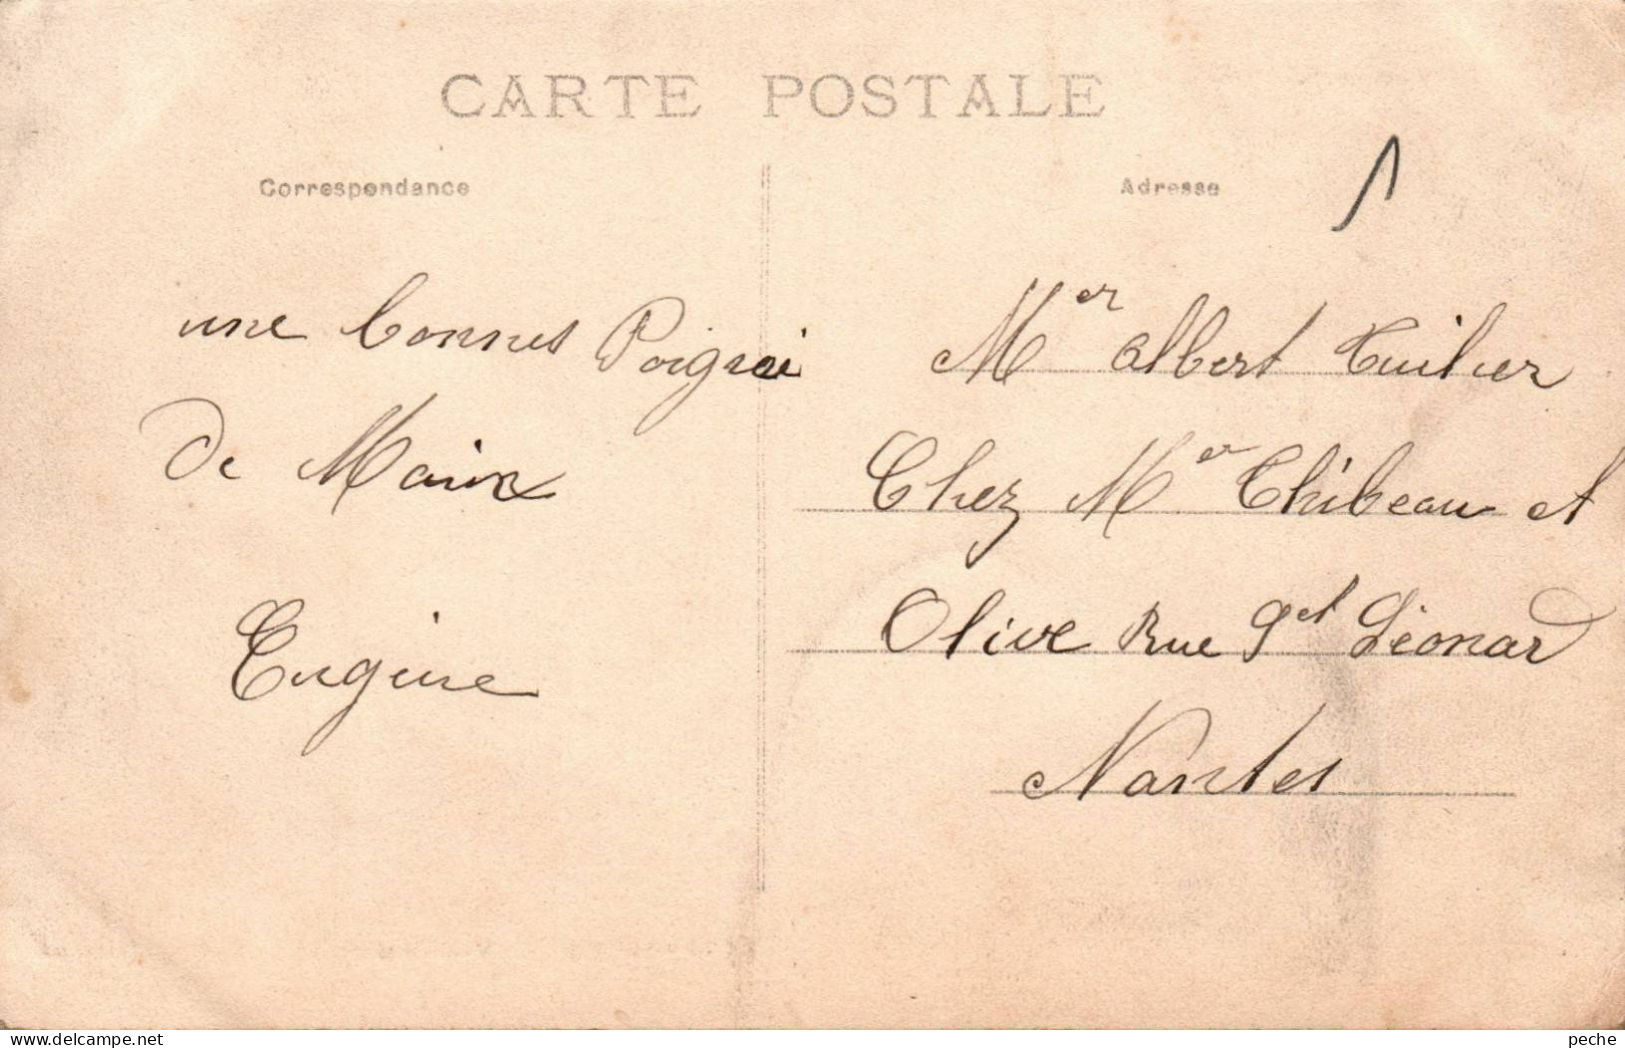 CARTE POSTALE
Correspondance
Adresse
une bonnes Poignei
de Mainx
Eugène
Mer Albert Tuilier
Chez Mer Thibeau et
Olive Rue St Léonard
Nantes
delcampe.net
peche